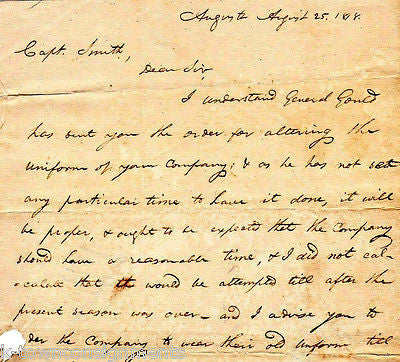 Augusta August 25. 1818.
Capt. Smith,
Dear Sir
I understand General Gould
has sent you the order for altering the
Uniform of your Company; & as he has not set
any particular time to have it done, it will
be proper, & ought to be expected that the Company
should have a reasonable time, & I did not cal-
-culate that it would be attempted till after the
present season was over - and I advise you to
order the Company to wear their old uniform till